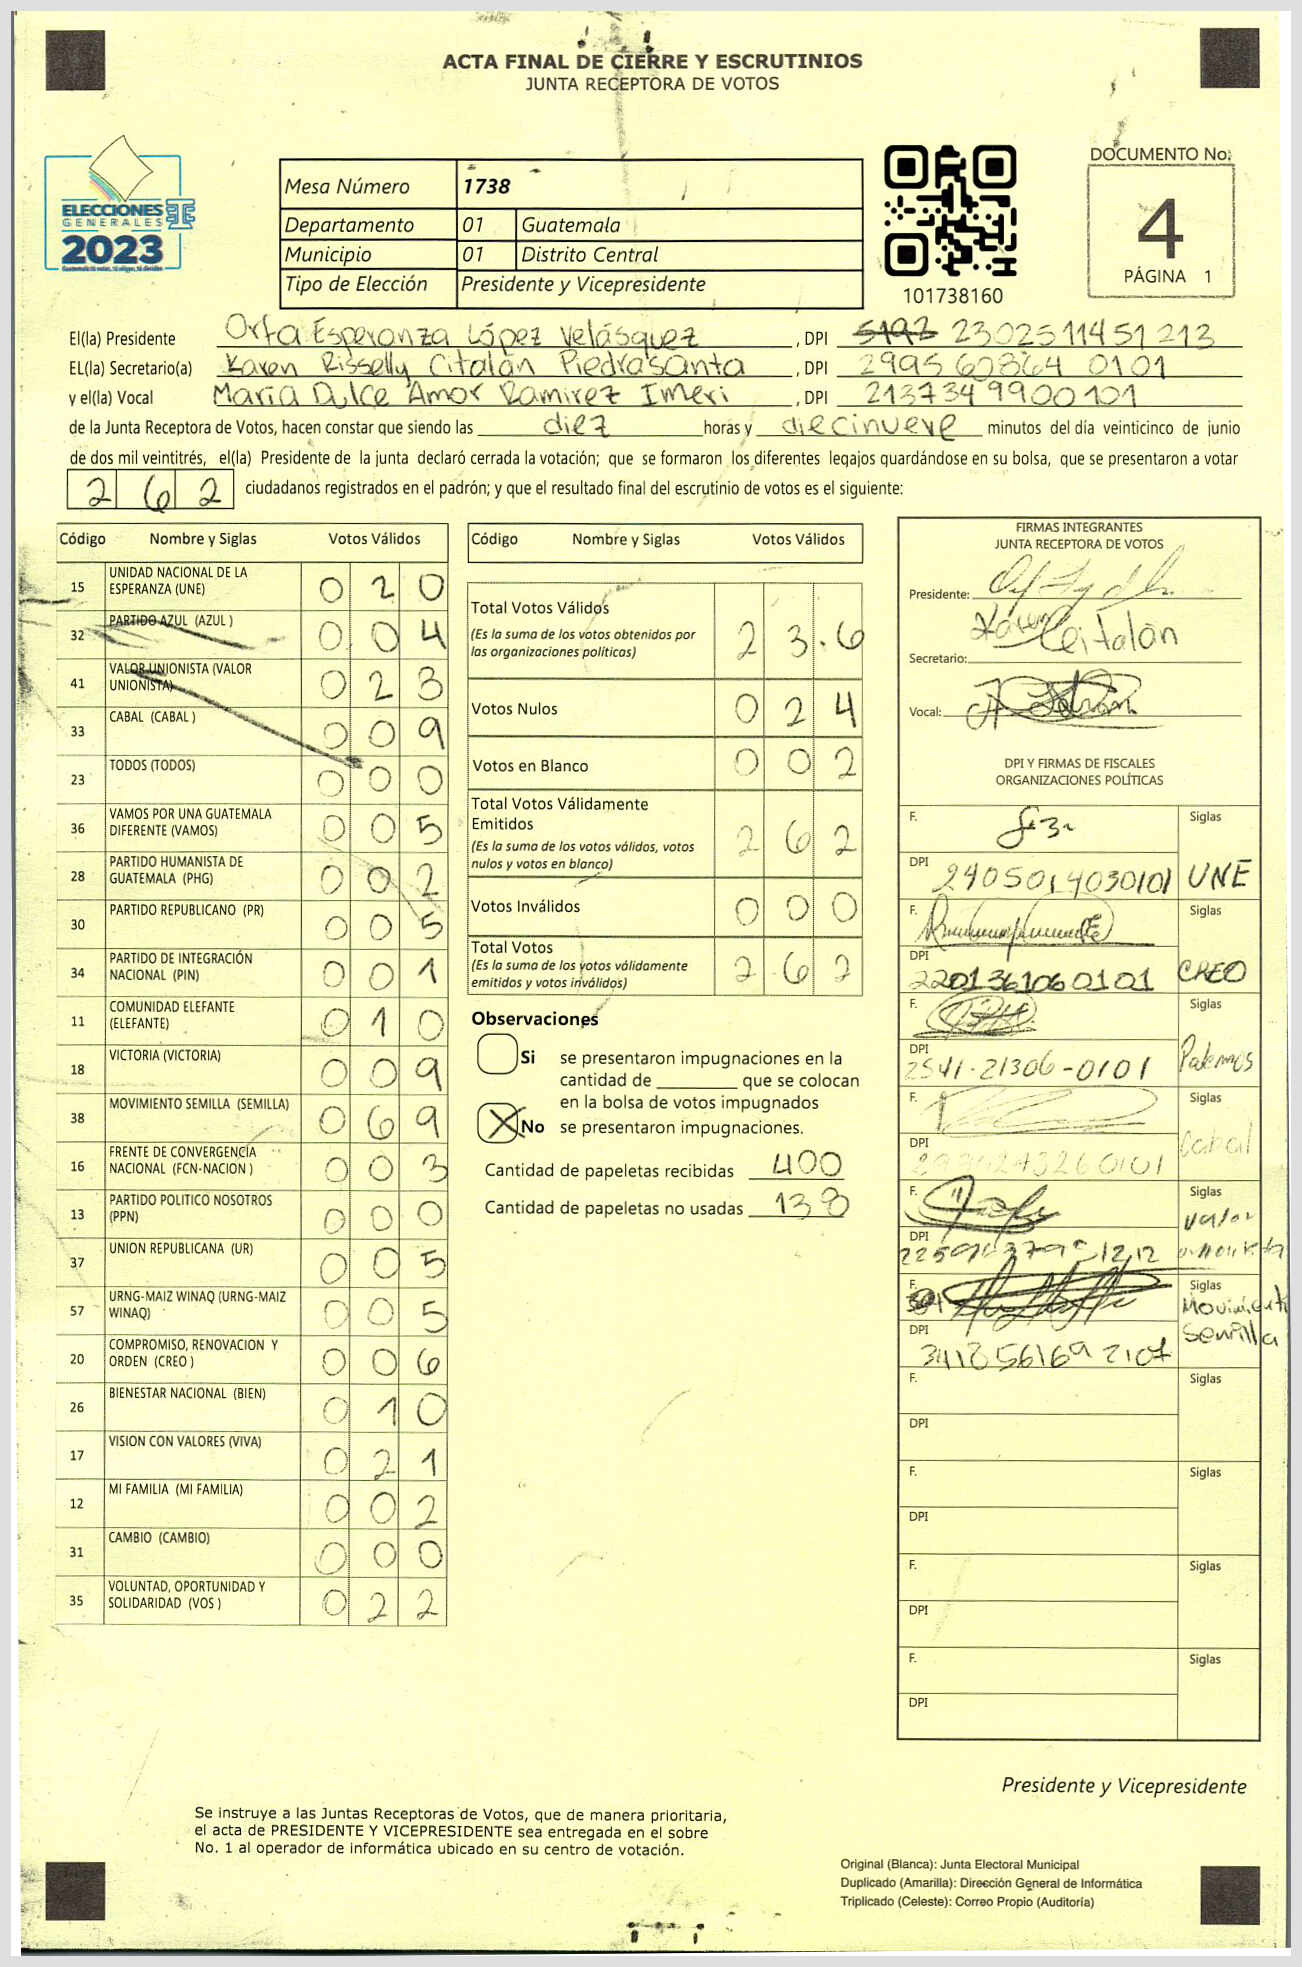 ACTA FINAL DE CIERRE Y ESCRUTINIOS
JUNTA RECEPTORA DE VOTOS
ELECCIONES
GENERALES
2023
Mesa Número 1738
Departamento 01 Guatemala
Municipio 01 Distrito Central
Tipo de Elección Presidente y Vicepresidente
101738160
DOCUMENTO No.
4
PÁGINA 1
El(la) Presidente Orfa Esperanza López Velásquez, DPI 2302511451213
EL(la) Secretario(a) Karen Risselly Citalán Piedrasanta, DPI 2995608640101
y el(la) Vocal María Dulce Amor Ramirez Imeri, DPI 2137349900101
de la Junta Receptora de Votos, hacen constar que siendo las diez horas y diecinueve minutos del día veinticinco de junio
de dos mil veintitrés, el(la) Presidente de la junta declaró cerrada la votación; que se formaron los diferentes legajos guardándose en su bolsa, que se presentaron a votar
262 ciudadanos registrados en el padrón; y que el resultado final del escrutinio de votos es el siguiente:
Código Nombre y Siglas Votos Válidos
15 UNIDAD NACIONAL DE LA ESPERANZA (UNE) 0 2 0
32 PARTIDO AZUL (AZUL ) 0 0 4
41 VALOR UNIONISTA (VALOR UNIONISTA) 0 2 3
33 CABAL (CABAL ) 0 0 9
23 TODOS (TODOS) 0 0 0
36 VAMOS POR UNA GUATEMALA DIFERENTE (VAMOS) 0 0 5
28 PARTIDO HUMANISTA DE GUATEMALA (PHG) 0 0 2
30 PARTIDO REPUBLICANO (PR) 0 0 5
34 PARTIDO DE INTEGRACIÓN NACIONAL (PIN) 0 0 1
11 COMUNIDAD ELEFANTE (ELEFANTE) 0 1 0
18 VICTORIA (VICTORIA) 0 0 9
38 MOVIMIENTO SEMILLA (SEMILLA) 0 6 9
16 FRENTE DE CONVERGENCIA NACIONAL (FCN-NACION ) 0 0 3
13 PARTIDO POLITICO NOSOTROS (PPN) 0 0 0
37 UNION REPUBLICANA (UR) 0 0 5
57 URNG-MAIZ WINAQ (URNG-MAIZ WINAQ) 0 0 5
20 COMPROMISO, RENOVACION Y ORDEN (CREO ) 0 0 6
26 BIENESTAR NACIONAL (BIEN) 0 1 0
17 VISION CON VALORES (VIVA) 0 2 1
12 MI FAMILIA (MI FAMILIA) 0 0 2
31 CAMBIO (CAMBIO) 0 0 0
35 VOLUNTAD, OPORTUNIDAD Y SOLIDARIDAD (VOS ) 0 2 2
Código Nombre y Siglas Votos Válidos
Total Votos Válidos 2 3 6
(Es la suma de los votos obtenidos por
las organizaciones políticas)
Votos Nulos 0 2 4
Votos en Blanco 0 0 2
Total Votos Válidamente
Emitidos 2 6 2
(Es la suma de los votos válidos, votos
nulos y votos en blanco)
Votos Inválidos 0 0 0
Total Votos 2 6 2
(Es la suma de los votos válidamente
emitidos y votos inválidos)
Observaciones
Si se presentaron impugnaciones en la
cantidad de ________ que se colocan
en la bolsa de votos impugnados
No se presentaron impugnaciones.
Cantidad de papeletas recibidas 400
Cantidad de papeletas no usadas 138
FIRMAS INTEGRANTES
JUNTA RECEPTORA DE VOTOS
Presidente:
Karen Citalán
Secretario:
Vocal:
DPI Y FIRMAS DE FISCALES
ORGANIZACIONES POLÍTICAS
F. Siglas
DPI 2405014030101 UNE
F. Siglas
DPI 2201361060101 CREO
F. Siglas
DPI 2541-21306-0101 Podemos
F. Siglas
DPI Cabal
F. Siglas
DPI Valor Unionista
F. Siglas
DPI Movimiento Semilla
F. Siglas
DPI
F. Siglas
DPI
F. Siglas
DPI
F. Siglas
DPI
Presidente y Vicepresidente
Se instruye a las Juntas Receptoras de Votos, que de manera prioritaria,
el acta de PRESIDENTE Y VICEPRESIDENTE sea entregada en el sobre
No. 1 al operador de informática ubicado en su centro de votación.
Original (Blanca): Junta Electoral Municipal
Duplicado (Amarilla): Dirección General de Informática
Triplicado (Celeste): Correo Propio (Auditoría)